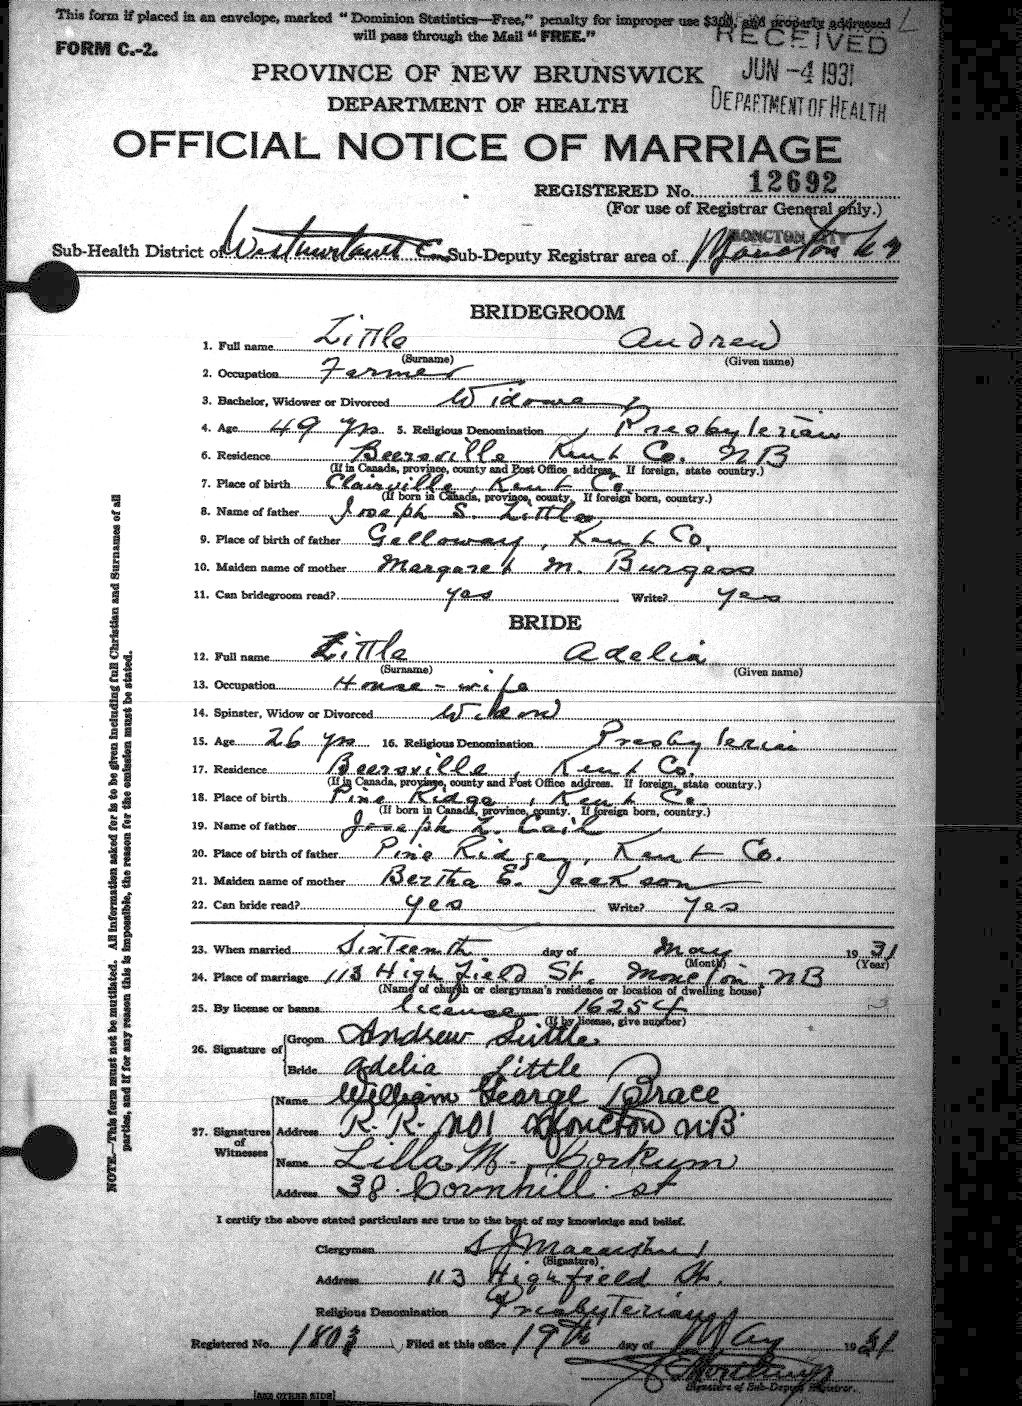 This form if placed in an envelope, marked "Dominion Statistics—Free," penalty for improper use $300, and properly addressed
will pass through the Mail "FREE."
FORM C.-2.
RECEIVED
JUN -4 1931
DEPARTMENT OF HEALTH
PROVINCE OF NEW BRUNSWICK
DEPARTMENT OF HEALTH
OFFICIAL NOTICE OF MARRIAGE
REGISTERED No. 12692
(For use of Registrar General only.)
MONCTON CITY
Sub-Health District of Westmorland Co. Sub-Deputy Registrar area of Moncton
BRIDEGROOM
1. Full name Little Andrew
(Surname) (Given name)
2. Occupation Farmer
3. Bachelor, Widower or Divorced Widower
4. Age 49 yrs. 5. Religious Denomination Presbyterian
6. Residence Beersville Kent Co. NB
(If in Canada, province, county and Post Office address. If foreign, state country.)
7. Place of birth Clairville, Kent Co.
(If born in Canada, province, county. If foreign born, country.)
8. Name of father Joseph S. Little
9. Place of birth of father Galloway, Kent Co.
10. Maiden name of mother Margaret M. Burgess
11. Can bridegroom read? yes Write? yes
BRIDE
12. Full name Little Adelia
(Surname) (Given name)
13. Occupation House-wife
14. Spinster, Widow or Divorced Widow
15. Age 26 yrs 16. Religious Denomination Presbyterian
17. Residence Beersville, Kent Co.
(If in Canada, province, county and Post Office address. If foreign, state country.)
18. Place of birth Pine Ridge, Kent Co
(If born in Canada, province, county. If foreign born, country.)
19. Name of father Joseph L. Cail
20. Place of birth of father Pine Ridge, Kent Co.
21. Maiden name of mother Bertha E. Jackson
22. Can bride read? yes Write? yes
23. When married Sixteenth day of May 1931
(Month) (Year)
24. Place of marriage 113 Highfield St. Moncton, NB
(Name of church or clergyman's residence or location of dwelling house)
25. By license or banns license 16254
(If by license, give number)
26. Signature of Groom Andrew Little
Bride Adelia Little
27. Signatures of Witnesses Name William George Brace
Address R. R. No1 Moncton NB
Name Lilla M. Korkum
Address 38 Cornhill st
I certify the above stated particulars are true to the best of my knowledge and belief.
Clergyman
(Signature)
Address 113 Highfield St.
Religious Denomination Presbyterian
Registered No. 1803 Filed at this office 19th day of May 1931
Signature of Sub-Deputy Registrar.
[SEE OTHER SIDE]
NOTE.—This form must not be mutilated. All information asked for is to be given including full Christian and Surnames of all
parties, and if for any reason this is impossible, the reason for the omission must be stated.